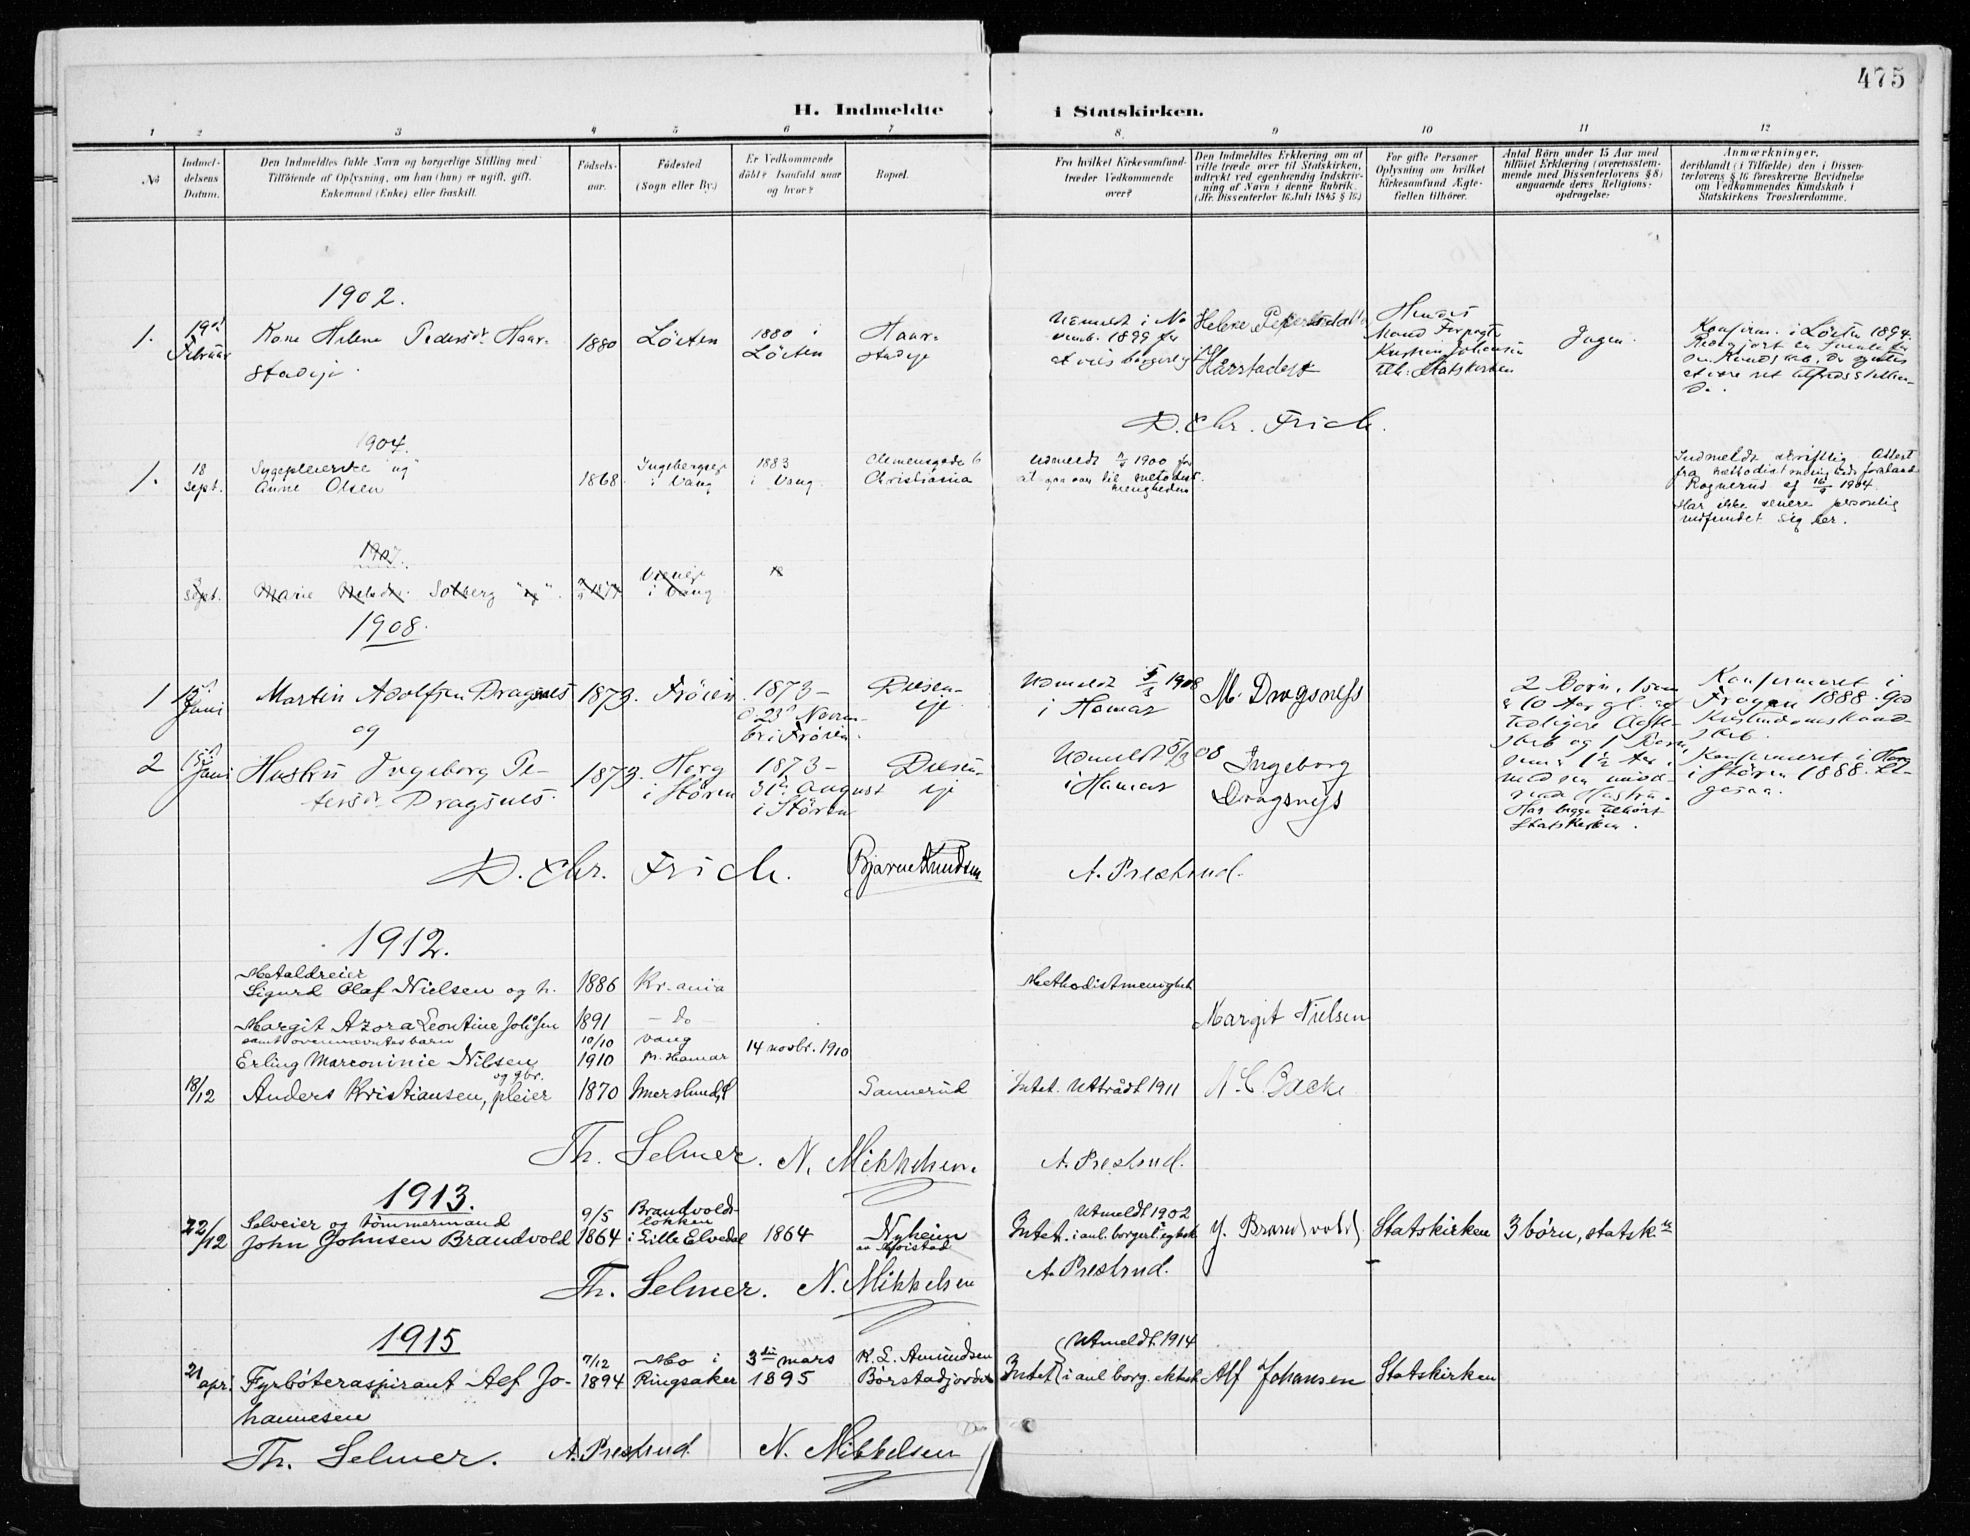 475
H. Indmeldte i Statskirken.
1 2 3 4 5 6 7 8 9 10 11 12
No
Indmel-
delsens
Datum.
Den Indmeldtes fulde Navn og borgerlige Stilling med
Tilføiende af Oplysning, om han (hun) er ugift, gift,
Enkemand (Enke) eller fraskilt.
Fødsels-
aar.
Fødested
(Sogn eller By.)
Er Vedkommende
døbt? Isaafald naar
og hvor?
Bopæl.
Fra hvilket Kirkesamfund
træder Vedkommende
over?
Den Indmeldtes Erklæring om at
ville træde over til Statskirken,
udtrykt ved egenhændig Indskriv-
ning af Navn i denne Rubrik.
(Jfr. Dissenterlov 16 Juli 1845 § 16.)
For gifte Personer
Oplysning om hvilket
Kirkesamfund Ægte-
fællen tilhører.
Antal Børn under 15 Aar med
tilføiet Erklæring (overensstem-
mende med Dissenterlovens § 8)
angaaende deres Religions-
opdragelse.
Anmærkninger,
deriblandt (i Tilfælde) den i Dissen-
terlovens § 16 foreskrevne Bevidnelse
om Vedkommendes Kundskab i
Statskirkens Troeslærdomme.
1902.
1.
19de
Februar
Kone Helene Pedersdr. Haar-
stadeje.
1880
Löiten
1880 i
Löiten
Haar-
stadeje
Udmeldt i No
vemb. 1899 for
at vies borgerligt
Helene Pedersdatter
Hårstadeje
Hendes
Mand Forpagter
Kristian Johansen
tilh. Statskirken
Ingen.
Konfirm. i Löiten 1894.
D. Chr. Frich.
1904.
1.
18
Sept.
Sygepleierske ug
Anne Olsen
1868
Ingebergseje
i Vang
1883
i Vang
Clemensgade 6
Christiania
Udmeldt 1900 for
at gaa over til metodist
menigheden
Indmeldt skriftlig Attest
fra Methodistmenigheds forstand
Rognerud af 16/9 1904.
Har ikke senere personlig
indfundet sig her.
1907.
Sept.
Marie Solberg "ug"
i Vang
1908.
1
15de
Juni
Martin Adolfsen Dragsnes
og
1873.
Fröien
1873 -
d 23de Novem-
ber i Fröien.
Disen-
eje
Udmeldt 5/3 1908
i Hamar
M. Dragsness
2 Börn, 1 som
er 10 Aar gl. af
tidligere Ægte-
skab og 1 Barn,
som er 1 1/2 Aar
Har begge tilhört
Statskirken.
Konfirmeret i
Frogn 1888. God
Kristendomskund-
skab.
2
15de
Juni
Hustru Ingeborg Pe-
tersdr. Dragsnes.
1873.
Horg
i Stören
1873 -
31te August
i Stören
Disen-
eje
Udmeldt 5/3 08
i Hamar
Ingeborg
Dragsness
Konfirmeret i Horg
i Stören 1888. Li-
gesaa.
D. Chr. Frich. Bjarne Knudsen A. Prestrud.
1912.
Metaldreier
Sigurd Olaf Nielsen og h.
1886
Kr.ania
Methodistmenighet
Margit Azora Leontine Johnsen
1891
- do -
Margit Nielsen
samt ovennævntes barn
Erling Marconinie Nilsen
10/10
1910
Vang
pr. Hamar
14 novbr. 1910
18/12
Anders Kristiansen, pleier
og gbr.
1870
Imerslund
Sannerud
Intet. Uttrådt 1911
A. C. Bache
Th. Selmer. N. Mikkelsen. A. Prestrud.
1913.
22/12
Selveier og tömmermand
John Johnsen Brandvold
9/5
1864
Brandvolds-
løkken
i Lille Elvedal
1864
Nyheim
av Afoistad
Utmeldt 1902
Intet. i anl. borgerl. egtesk.
J. Brandvold
Statskirken
3 børn, statsk.
Th. Selmer. N. Mikkelsen A. Prestrud.
1915
21
apr.
Fyrbøteraspirant Alf Jo-
hannesen
7/12
1894
Mo i
Ringsaker
3die mars
1895
K. L. Amundsen
Børstadjordet
Utmeldt 1914
Intet (i anl. borg. ektesk.
Alf Johansen
Statskirken
Th. Selmer. A. Prestrud. N. Mikkelsen